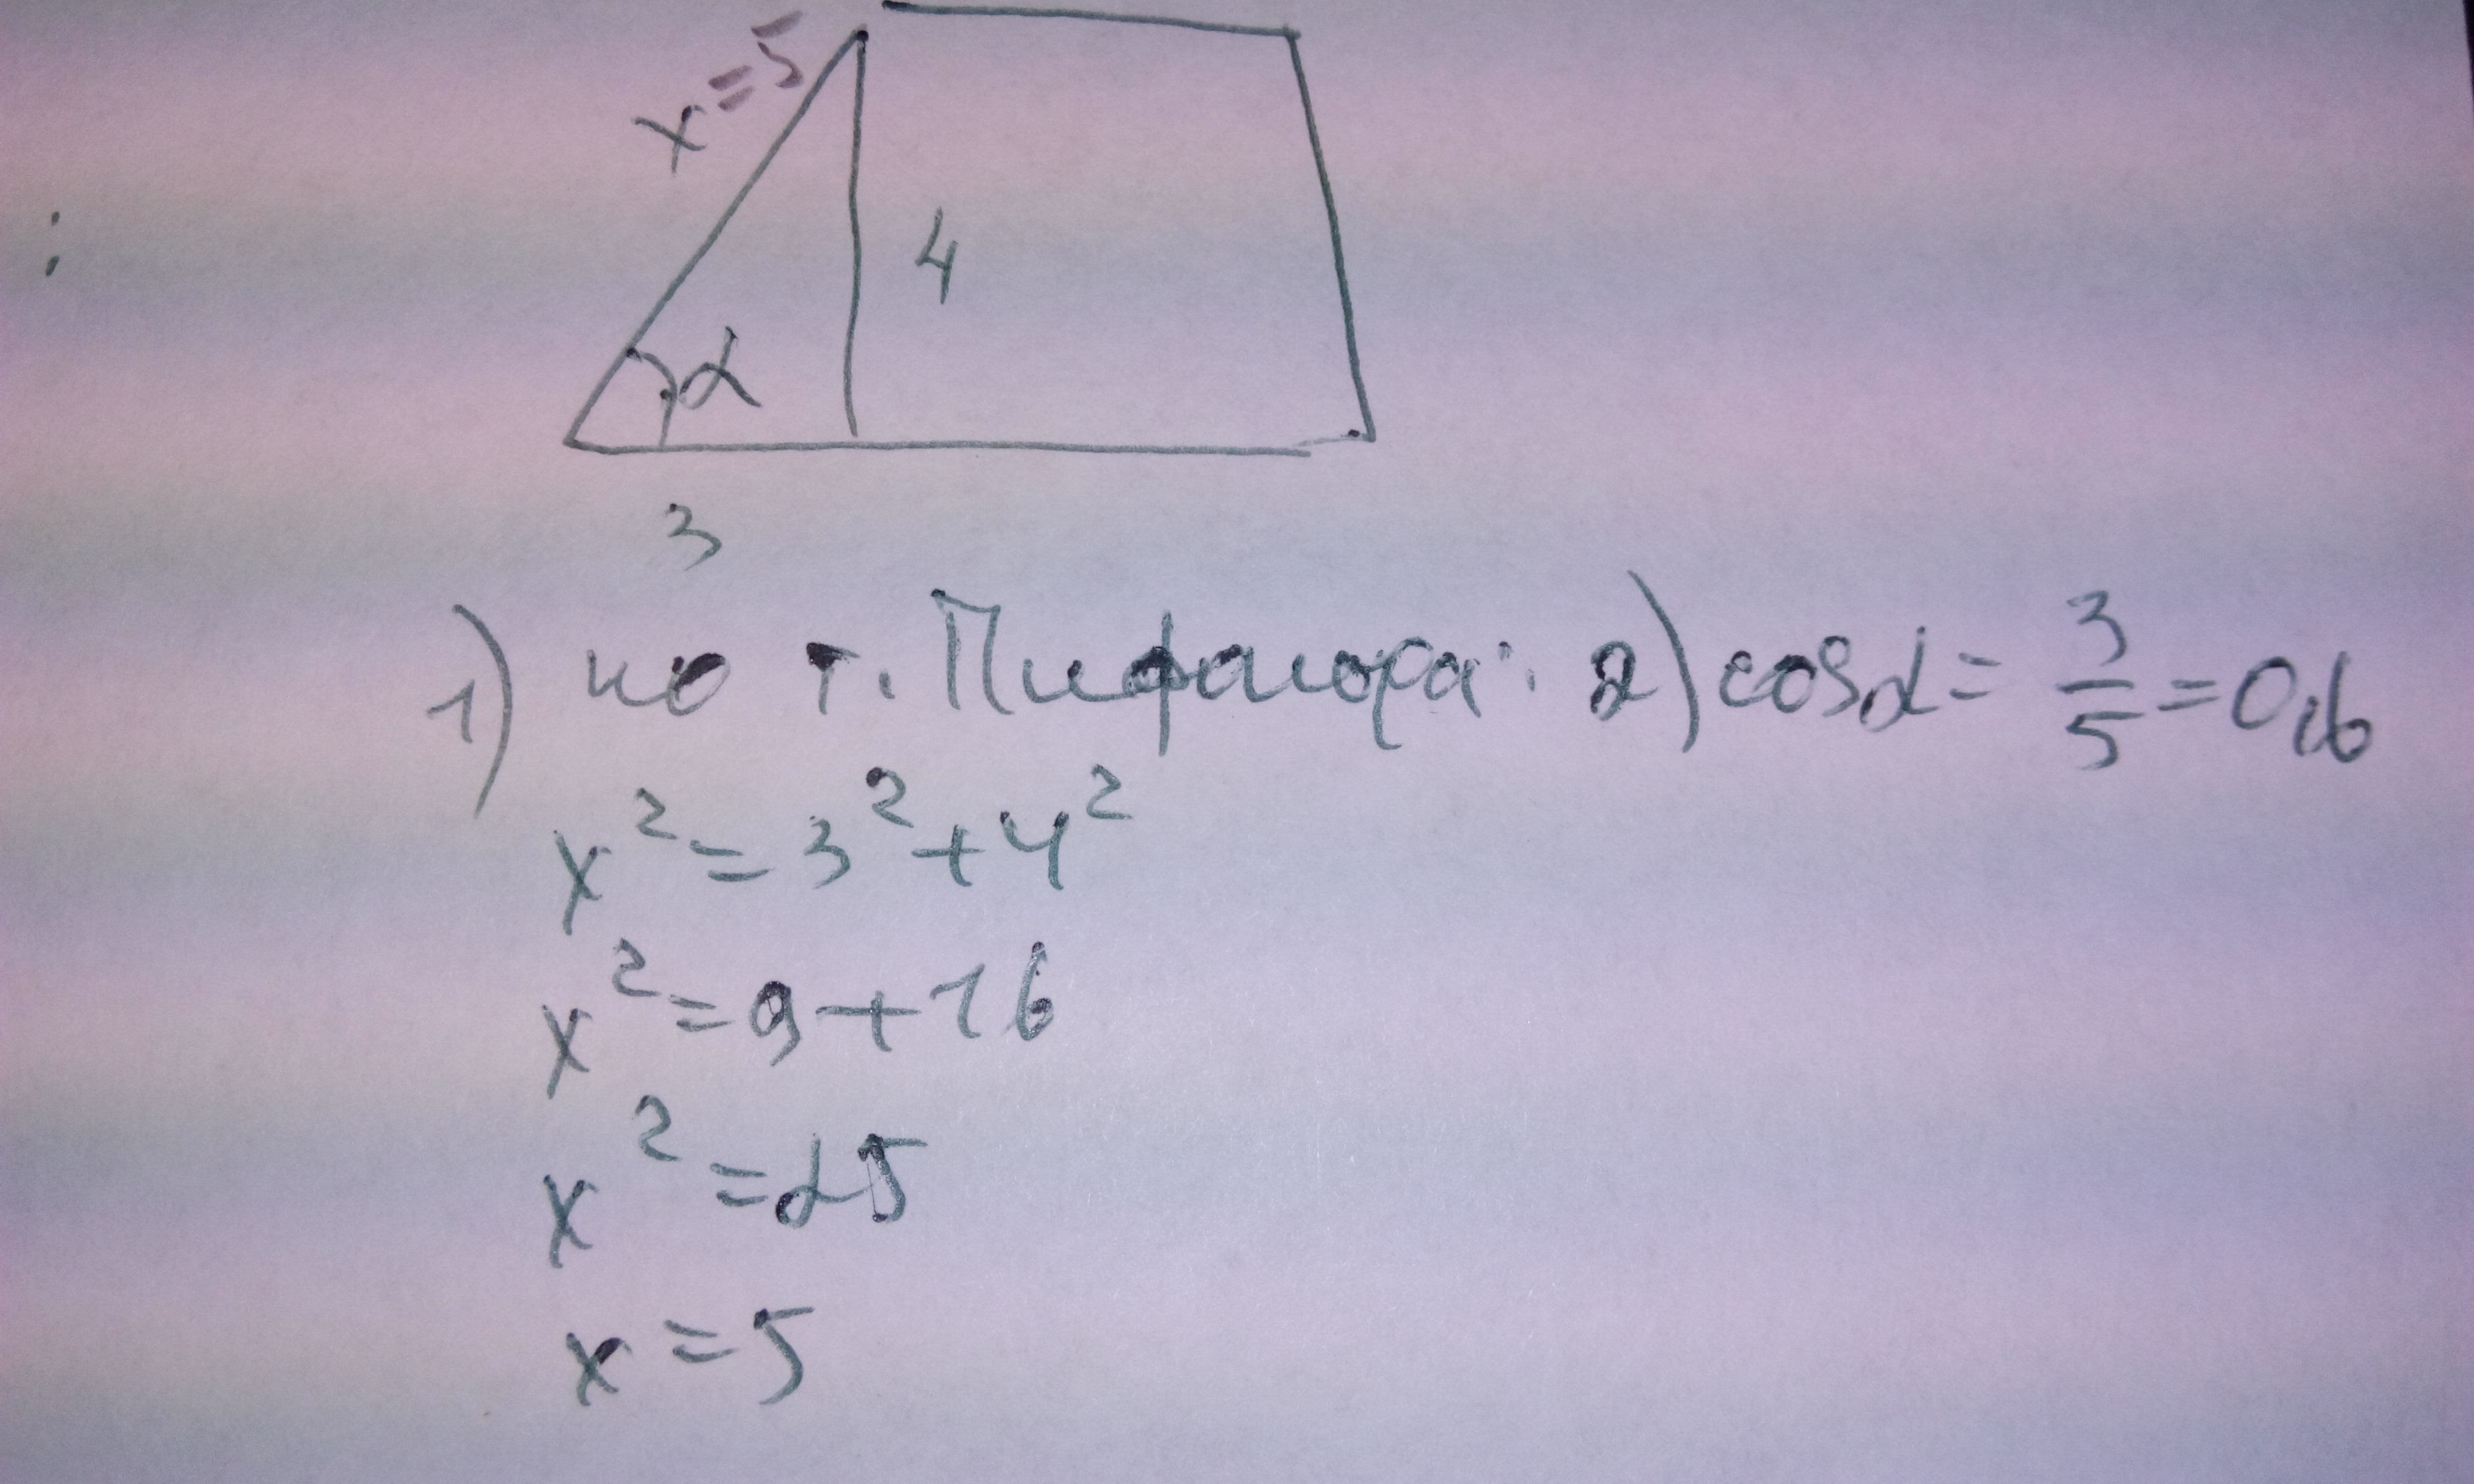 x=5
4
α
3
1) по т. Пифагора: 2) cosα = 3/5 = 0,6
x² = 3² + 4²
x² = 9 + 16
x² = 25
x = 5